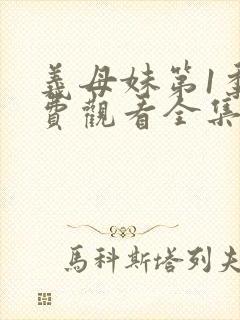 義母妹第1季
費觀看全集
馬科斯塔列夫